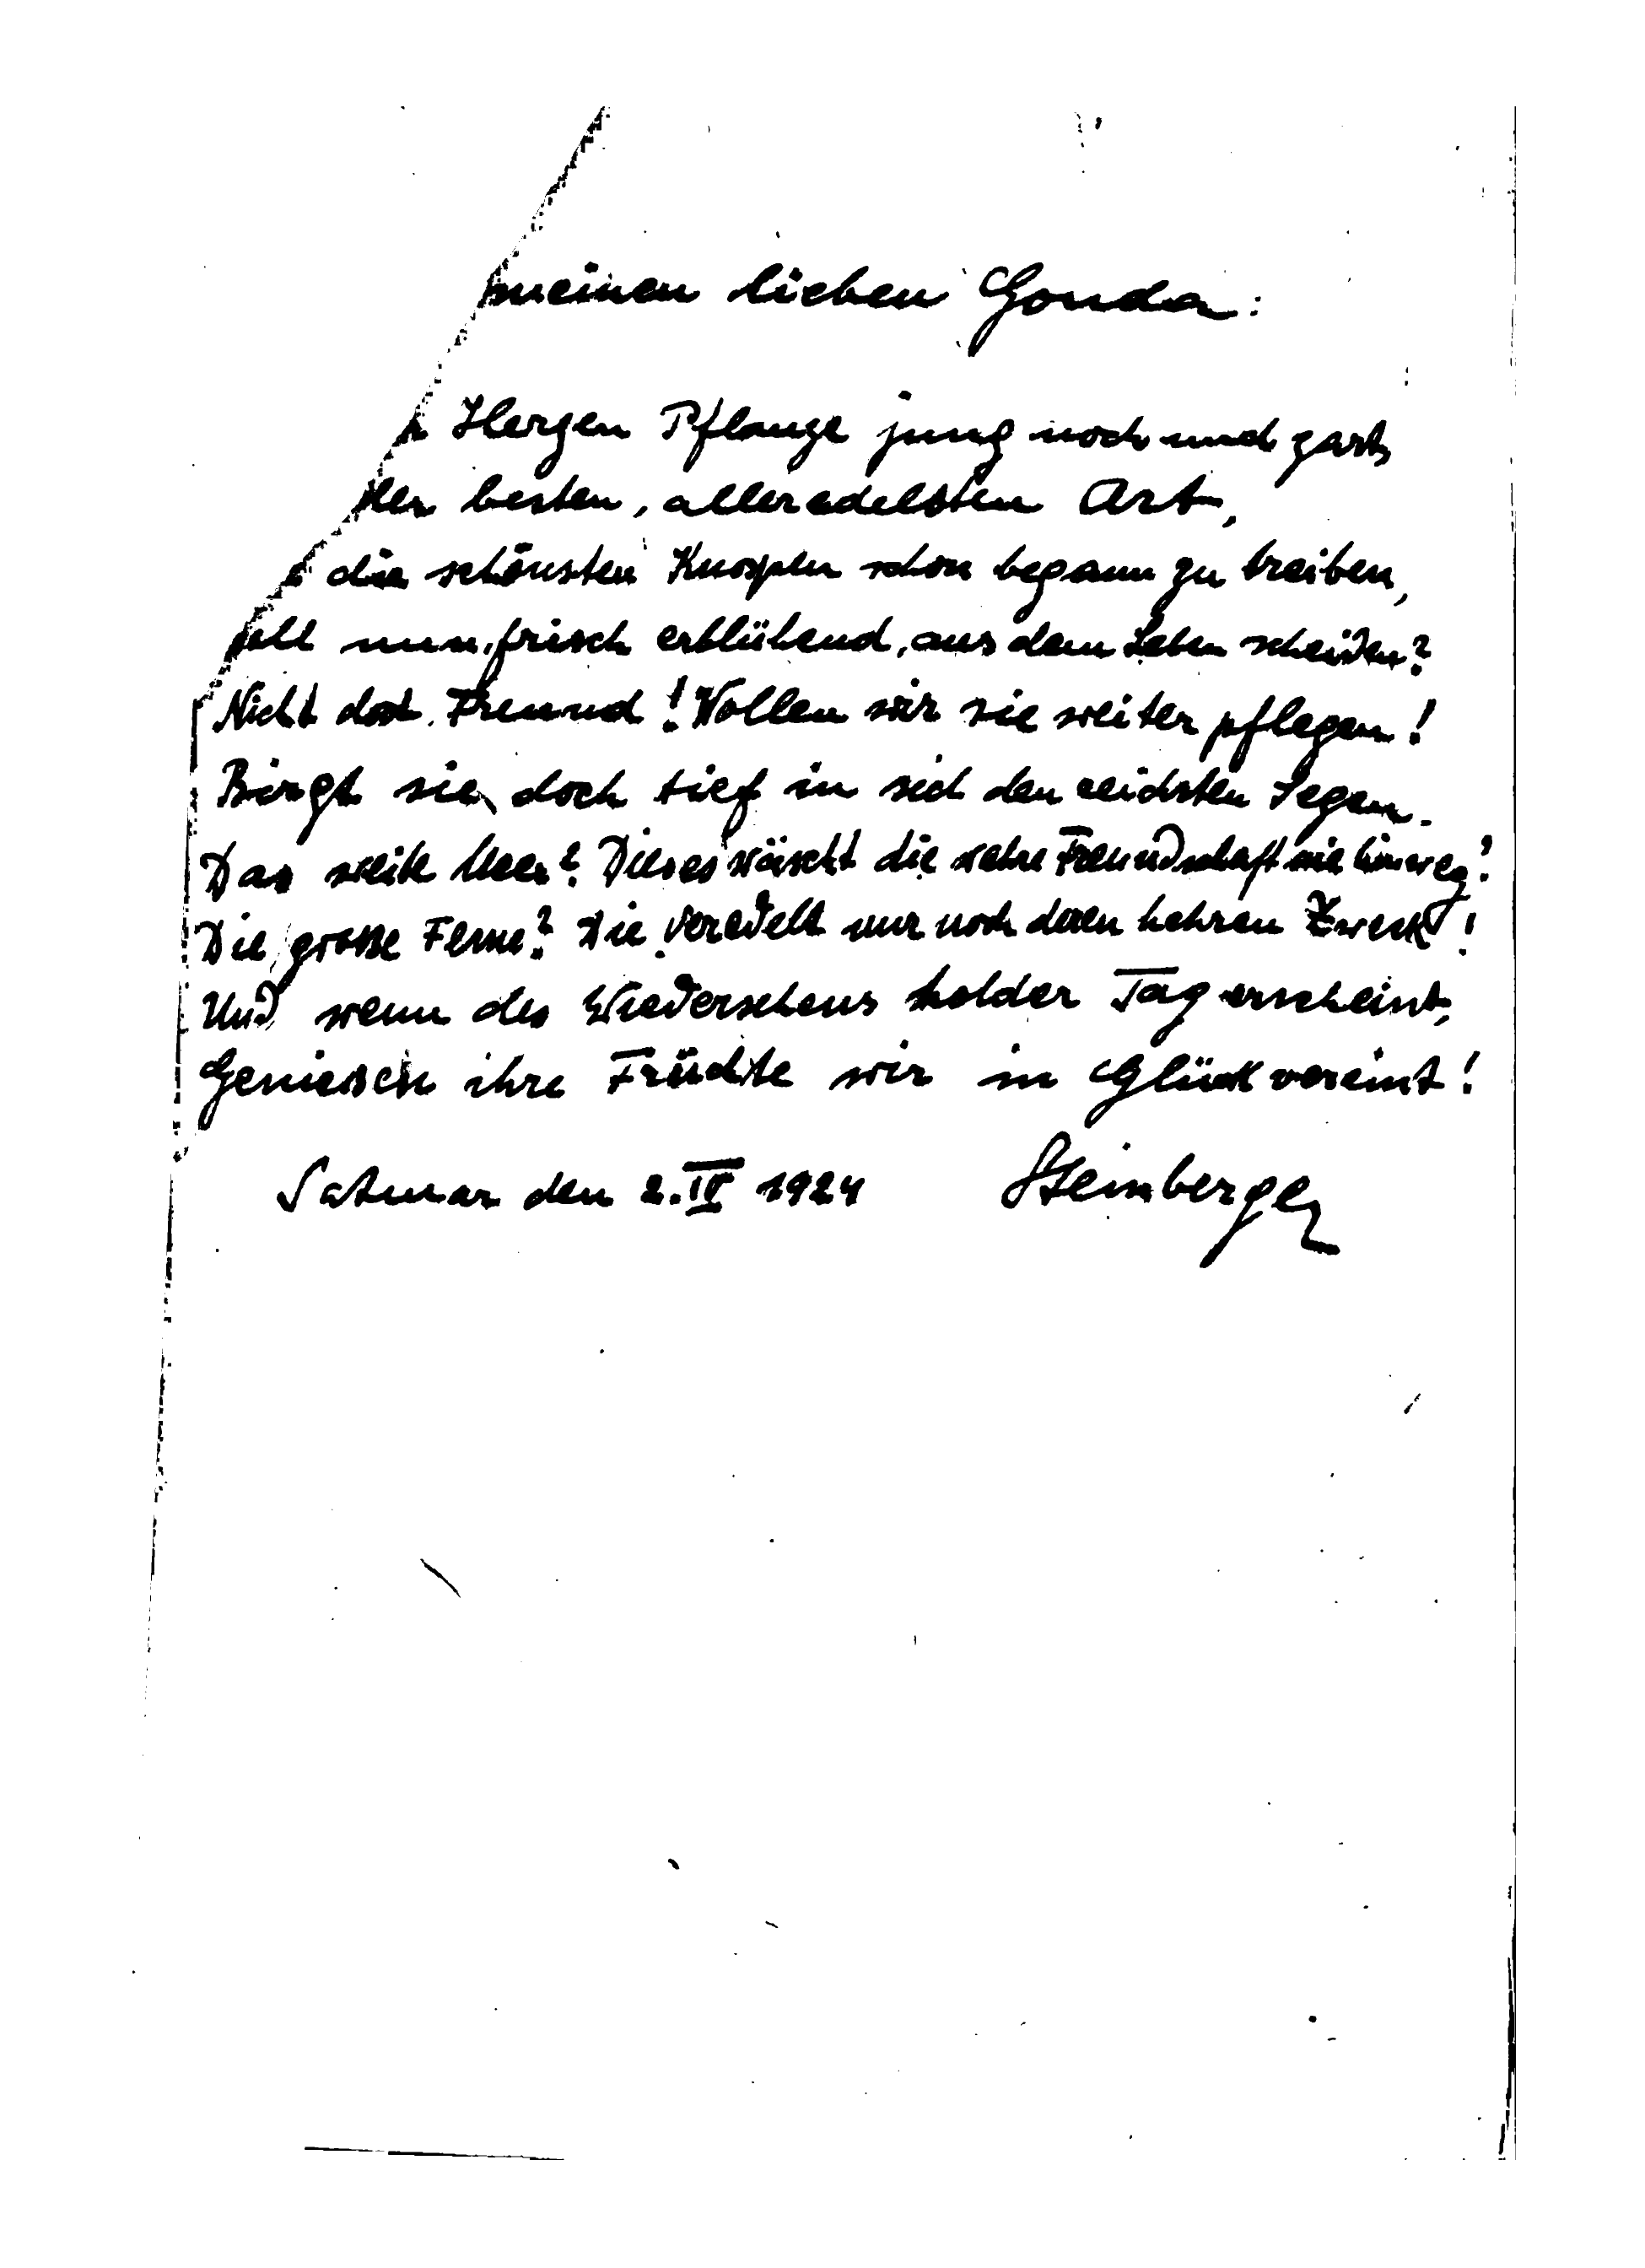 meinen lieben Gonda:
Herzen Pflanze jung noch und zart,
der besten, alleredelsten Art,
die schönsten Knospen schon begann zu treiben,
soll nun, frisch erblühend, aus dem Leben scheiden?
Nicht doch Freund! Wollen wir sie weiter pflegen!
Birgt sie doch tief in sich den reichsten Segen.
Das weite Meer? Dieses wäscht die wahre Freundschaft nie hinweg!
Die große Ferne? Die veredelt nur noch deren hehren Zweck!
Und wenn des Wiedersehens holder Tag erscheint,
Geniessen ihre Früchte wir in Glück vereint!
Satmar den 2.IV 1924 Steinberger